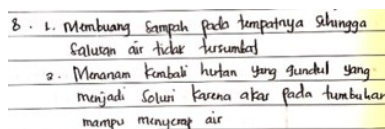 8. 1. Membuang sampah pada tempatnya sehingga
saluran air tidak tersumbat
2. Menanam kembali hutan yang gundul yang
menjadi solusi karena akar pada tumbuhan
mampu menyerap air